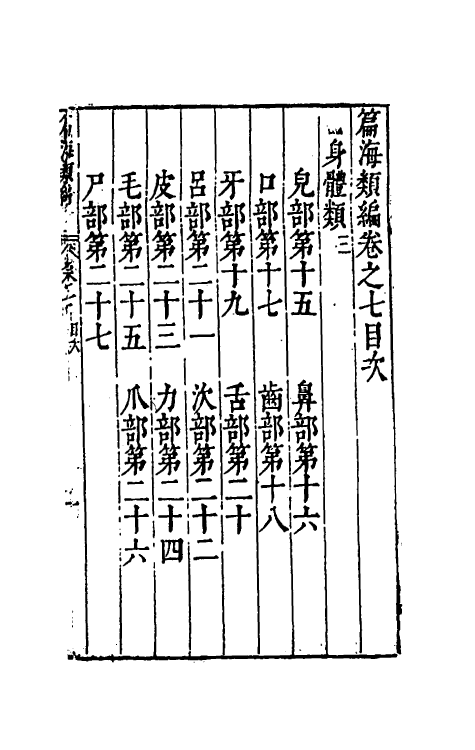 篇海類編卷之七目次
身體類三
皃部第十五　鼻部第十六
口部第十七　齒部第十八
牙部第十九　舌部第二十
呂部第二十一　次部第二十二
皮部第二十三　力部第二十四
毛部第二十五　爪部第二十六
尸部第二十七